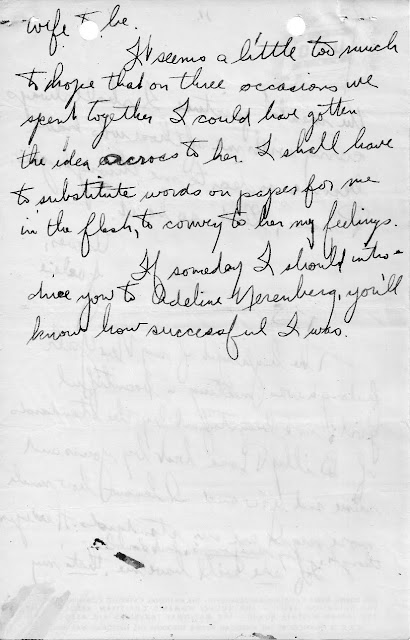 wife to be.
It seems a little too much
to hope that on three occasions we
spent together I could have gotten
the idea across to her. I shall have
to substitute words on paper for me
in the flesh, to convey to her my feelings.
If someday I should intro-
duce you to Adeline Nerenberg, you'll
know how successful I was.